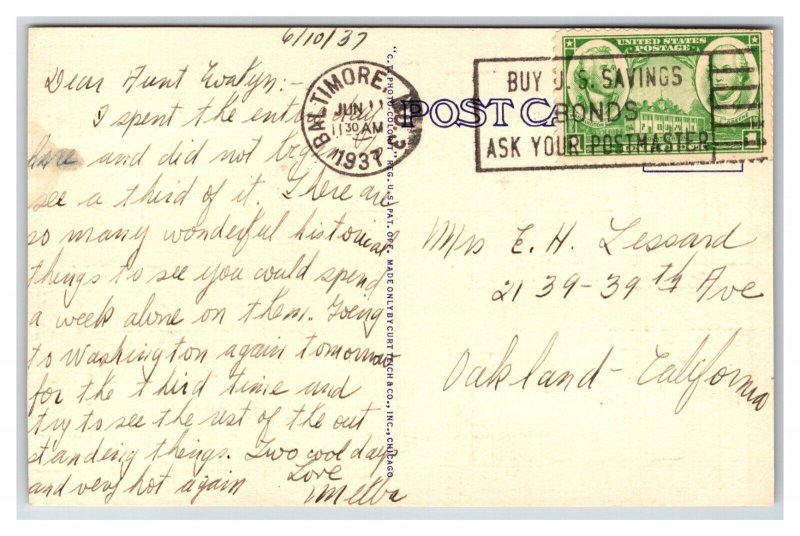 6/10/37
Dear Aunt Evalyn:-
I spent the entire day
here and did not
see a third of it. There are
so many wonderful historical
things to see you could spend
a week alone on them. Going
to Washington again tomorrow
for the third time and
try to see the rest of the out
standing things. Two cool days
and very hot again
Love
Melba
"C.T. PHOTO-COLORIT" REG. U.S. PAT. OFF. MADE ONLY BY CURT TEICH & CO., INC., CHICAGO
POST CARD
BALTIMORE, MD.
JUN 11
1130 AM
1937
BUY U.S. SAVINGS
BONDS
ASK YOUR POSTMASTER
UNITED STATES
POSTAGE
Mrs E. H. Lessard
2139-39th Ave
Oakland-California